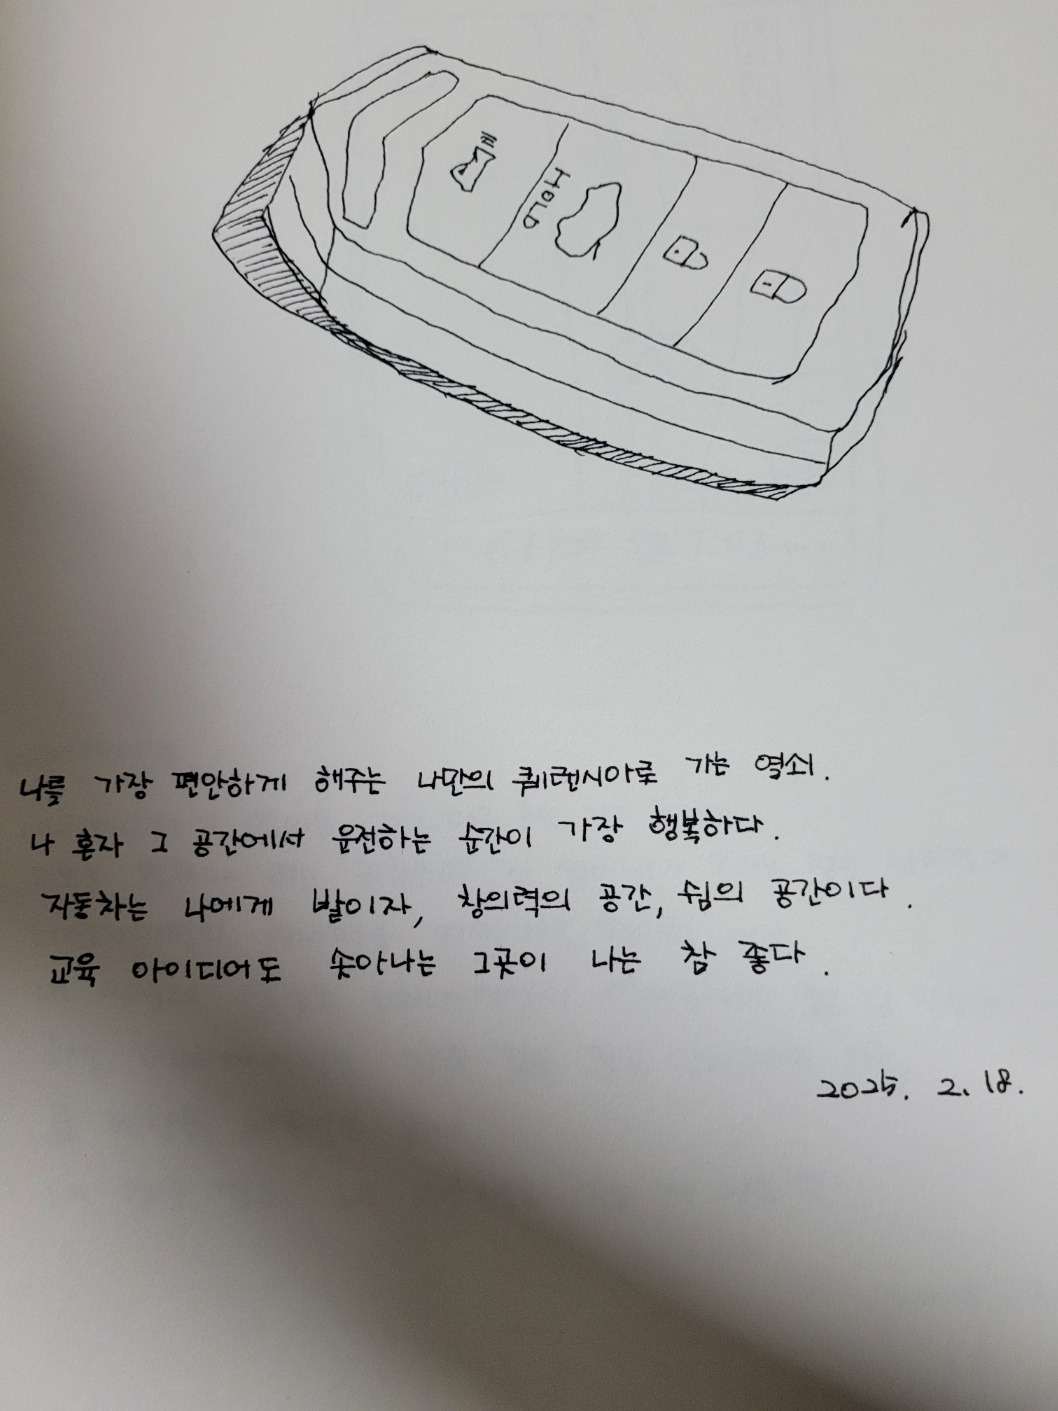 HOLD
나를 가장 편안하게 해주는 나만의 퀘렌시아로 가는 열쇠.
나 혼자 그 공간에서 운전하는 순간이 가장 행복하다.
자동차는 나에게 발이자, 창의력의 공간, 쉼의 공간이다.
교육 아이디어도 솟아나는 그곳이 나는 참 좋다.
2025. 2. 18.